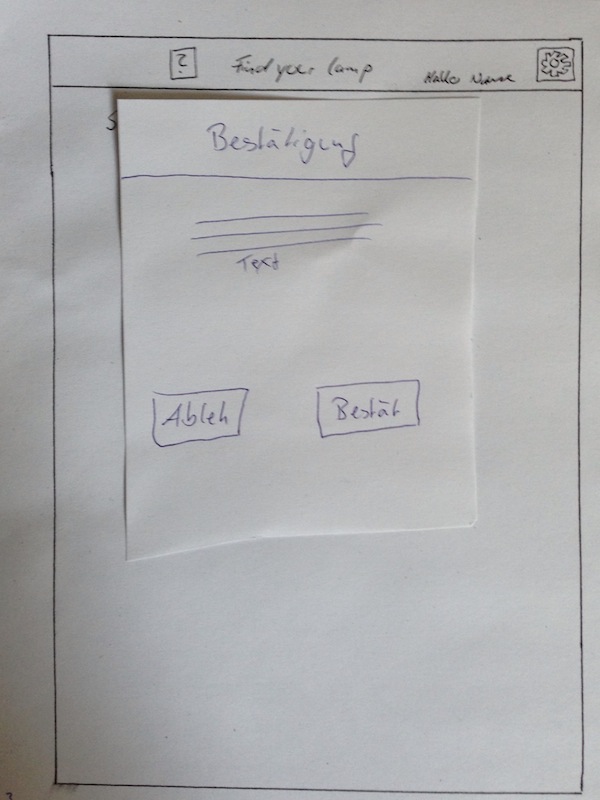 ? Find your lamp Hallo Name
S
Bestätigung
Text
Ableh Bestät